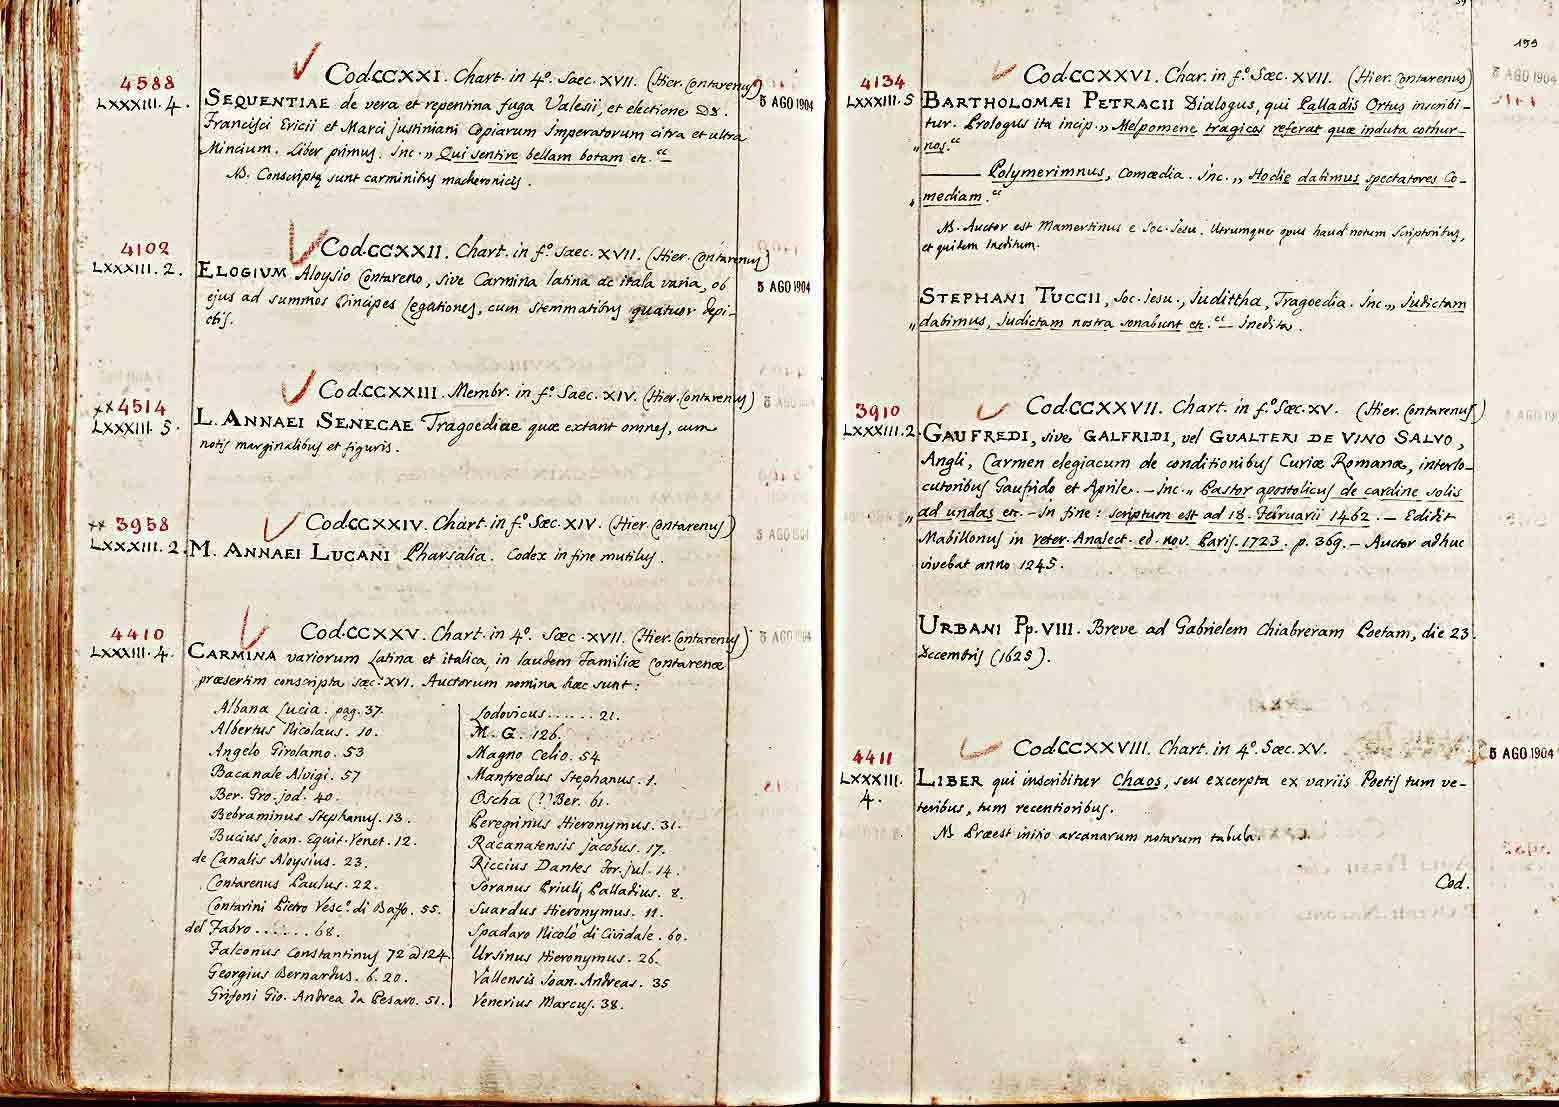 4588
LXXXIII. 4.
Cod. CCXXI. Chart. in 4º. Saec. XVII. (Hier. Contarenus)
5 AGO 1904
SEQUENTIAE de vera et repentina fuga Valesii, et electione DD.
Francisci Ericii et Marci Justiniani Copiarum Imperatorum citra et ultra
Mincium. Liber primus. Inc. „ Qui sentire bellam botam etc.“ —
NB. Conscriptę sunt carminibus macheronicis.
4102
LXXXIII. 2.
Cod. CCXXII. Chart. in fº. Saec. XVII. (Hier. Contarenus)
5 AGO 1904
ELOGIUM Aloysio Contareno, sive Carmina latina ac itala varia, ob
ejus ad summos Principes Legationes, cum stemmatibus quatuor depi-
ctis.
xx 4514
LXXXIII. 5.
Cod. CCXXIII. Membr. in fº. Saec. XIV. (Hier. Contarenus)
5 AGO
L. ANNAEI SENECAE Tragoediae quae extant omnes, cum
notis marginalibus et figuris.
xx 3958
LXXXIII. 2.
Cod. CCXXIV. Chart. in fº. Sæc. XIV. (Hier. Contarenus)
5 AGO 1904
M. ANNAEI LUCANI Pharsalia. Codex in fine mutilus.
4410
LXXXIII. 4.
Cod. CCXXV. Chart. in 4º. Sæc. XVII. (Hier. Contarenus)
5 AGO 1904
CARMINA variorum Latina et italica, in laudem Familiæ Contarenæ
præsertim conscripta sæc. XVI. Auctorum nomina hæc sunt:
Albana Lucia. pag. 37.
Albertus Nicolaus. 10.
Angelo Girolamo. 53
Bacanale Alvigi. 57
Ber. Gro. jod. 40.
Bebraminus Stephanus. 13.
Bucius Joan. Equit. Venet. 12.
de Canalis Aloysius. 23.
Contarenus Paulus. 22.
Contarini Pietro Vescº. di Baffo. 55.
del Fabro . . . . . . 68.
Falconus Constantinus 72 ad 124.
Georgius Bernardus. 6. 20.
Grifoni Gio. Andrea da Pesaro. 51.
Lodovicus . . . . . . 21.
M. G. 126.
Magno Celio. 54
Manfredus Stephanus. 1.
Oscha (?) Ber. 61.
Peregrinus Hieronymus. 31.
Racanatensis Jacobus. 17.
Riccius Dantes For. jul. 14.
Soranus Priuli, Palladius. 8.
Suardus Hieronymus. 11.
Spadaro Nicolò di Cividale. 60.
Ursinus Hieronymus. 26.
Vallensis Joan. Andreas. 35
Venerius Marcus. 38.
199
4134
LXXXIII. 5
Cod. CCXXVI. Char. in fº. Sæc. XVII. (Hier. Contarenus)
5 AGO 1904
BARTHOLOMÆI PETRACII Dialogus, qui Palladis Ortus inscribi-
tur. Prologus ita incip. „ Melpomene tragicos referat quæ induta cothur-
„ nos.“
——— Polymerimnus, Comœdia. Inc. „ Hodie dabimus spectatores Co-
„ mediam.“
NB. Auctor est Mamertinus e Soc. Jesu. Utrumque opus haud notum Scriptoribus,
et quidem Ineditum.
STEPHANI TUCCII, Soc. Jesu., Judittha, Tragoedia. Inc. „ Judictam
„ dabimus, Judictam nostra sonabunt etc.“ — Inedita.
3910
LXXXIII. 2.
Cod. CCXXVII. Chart. in fº. Sæc. XV. (Hier. Contarenus)
5 AGO 190
GAUFREDI, sive GALFRIDI, vel GUALTERI DE VINO SALVO,
Angli, Carmen elegiacum de conditionibus Curiæ Romanæ, interlo-
cutoribus Gaufrido et Aprile. — Inc. „ Pastor apostolicus de cardine solis
„ ad undas etc. — In fine: scriptum est ad 18. Februarii 1462. — Edidit
Mabillonus in veter. Analect. ed. nov. Paris. 1723. p. 369. — Auctor adhuc
vivebat anno 1245.
URBANI Pp. VIII. Breve ad Gabrielem Chiabreram Poetam, die 23.
Decembris (1625).
4411
LXXXIII.
4.
Cod. CCXXVIII. Chart. in 4º. Sæc. XV.
5 AGO 1904
LIBER qui inscribitur Chaos, seu excerpta ex variis Poetis tum ve-
teribus, tum recentioribus.
NB. Præest initio arcanarum notarum tabula.
Cod.